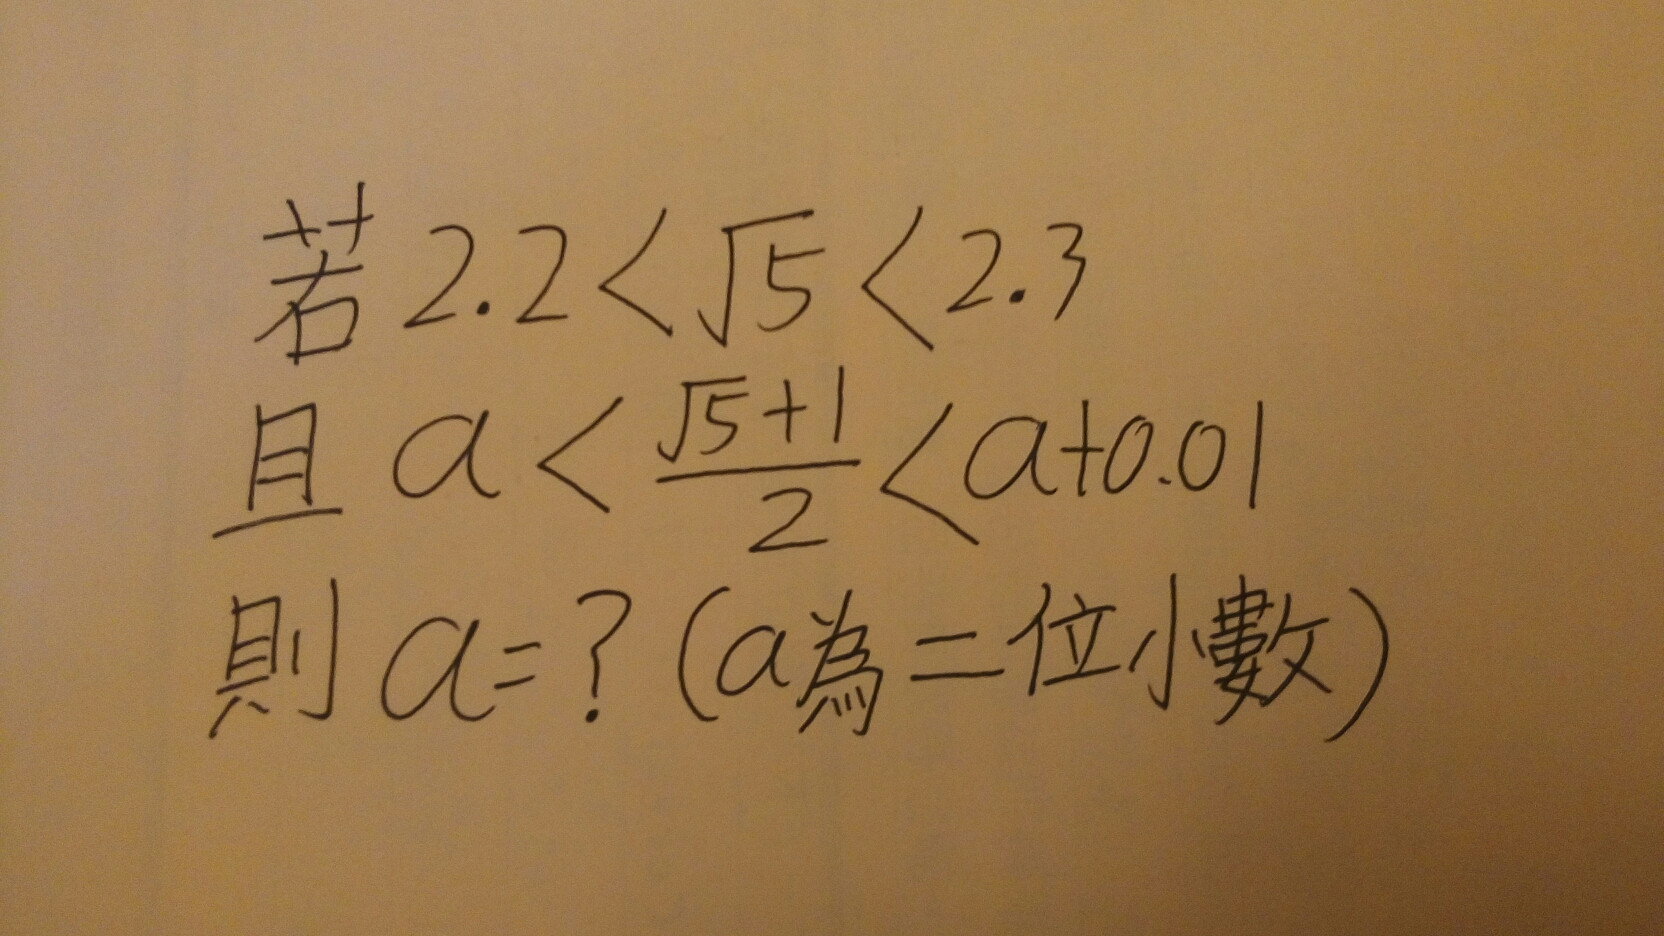 若 2.2 < √5 < 2.3
且 a < (√5+1)/2 < a+0.01
則 a=? (a為二位小數)